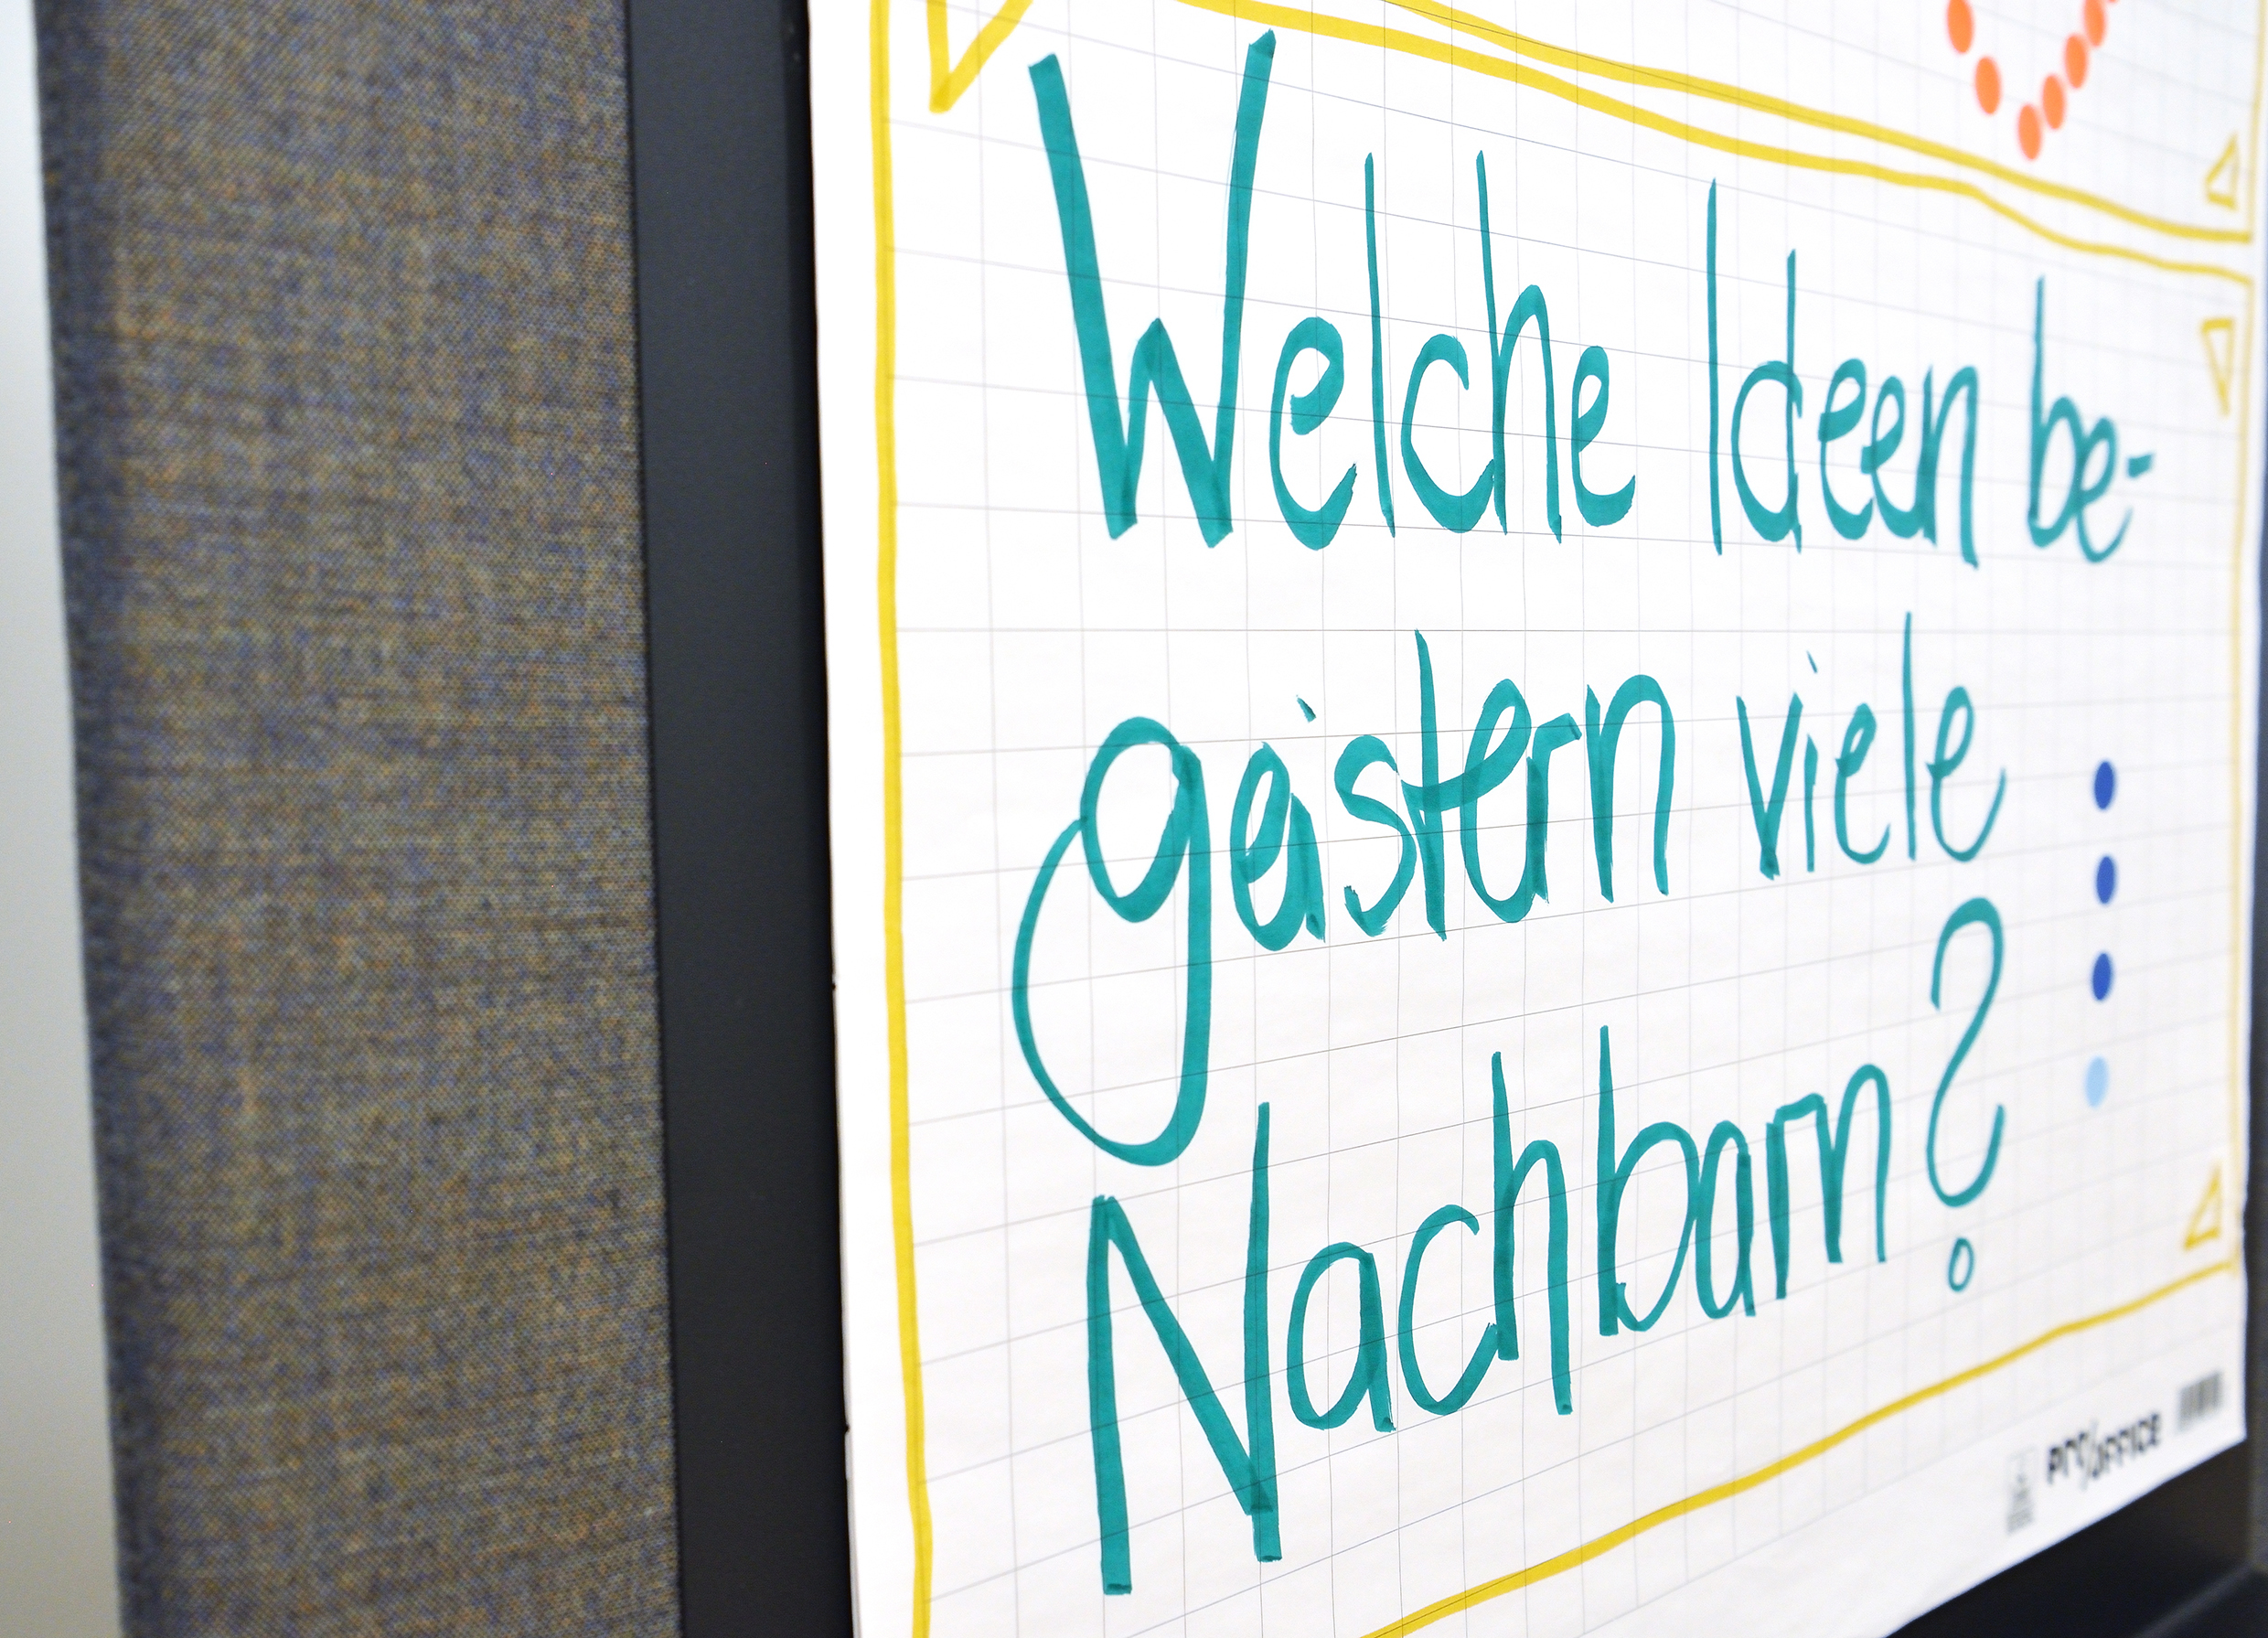 Welche Ideen be-
geistern viele
Nachbarn?
PRO/OFFICE